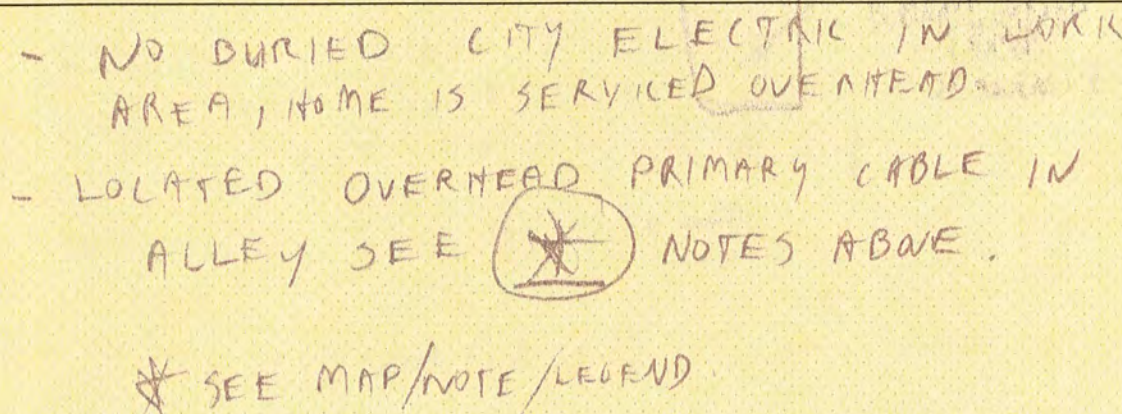 - NO BURIED CITY ELECTRIC IN WORK
AREA, HOME IS SERVICED OVERHEAD.
- LOCATED OVERHEAD PRIMARY CABLE IN
ALLEY SEE * NOTES ABOVE.
* SEE MAP/NOTE/LEGEND